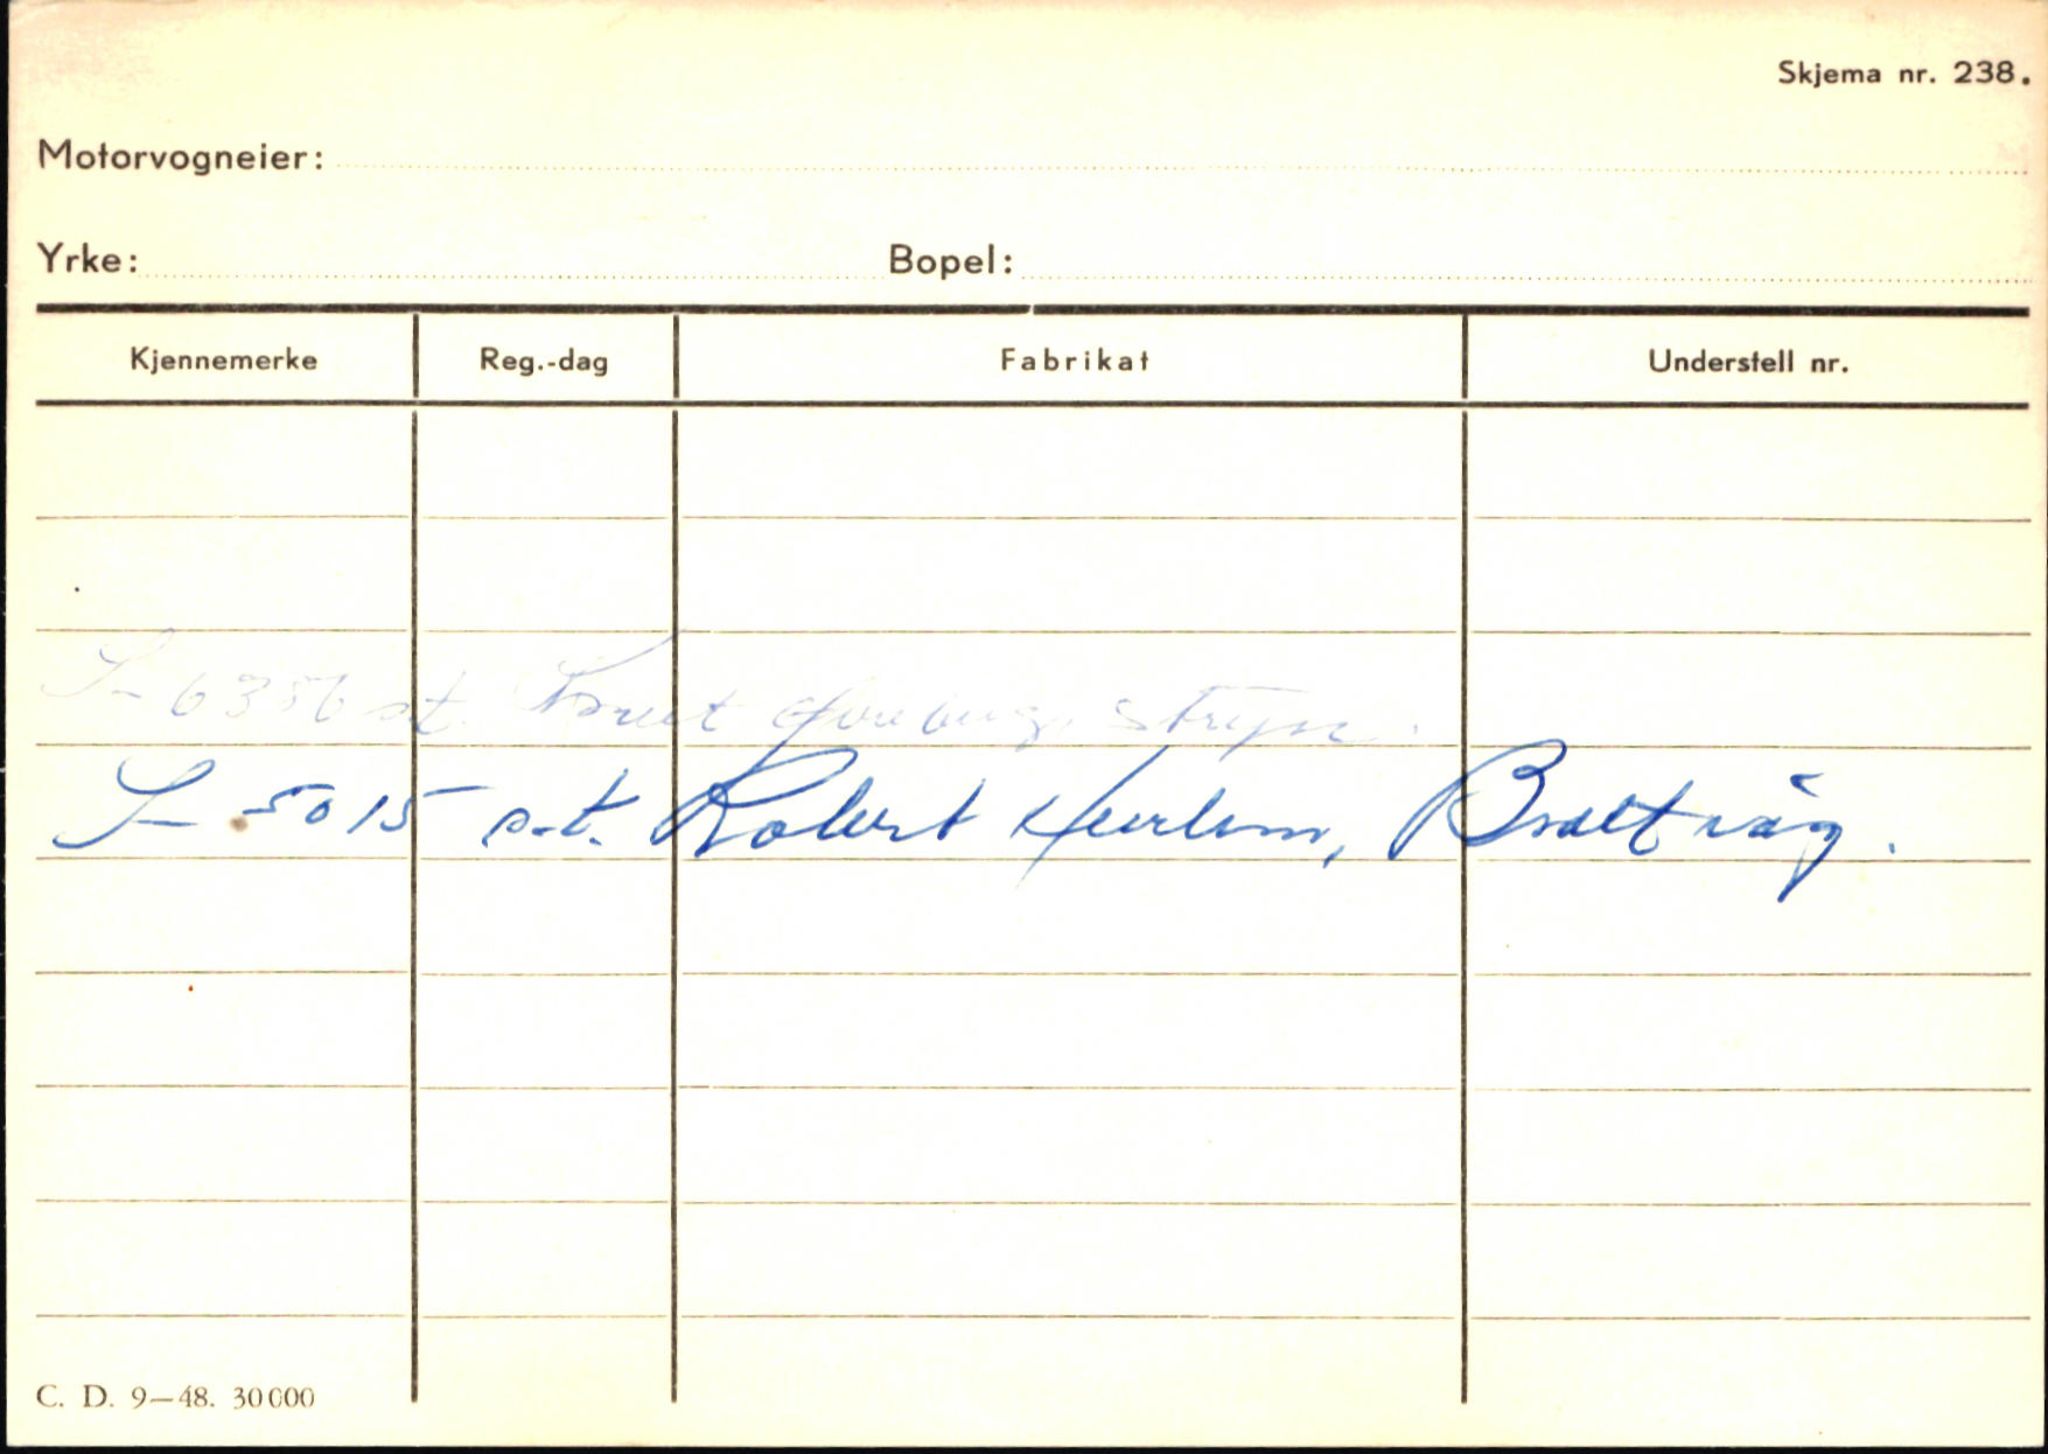 Skjema nr. 238.
Motorvogneier:
Yrke: Bopel:
Kjennemerke Reg.-dag Fabrikat Understell nr.
S-6356 st. Stryn.
S-5015 s.t. Robert Brattvåg.
C. D. 9—48. 30000